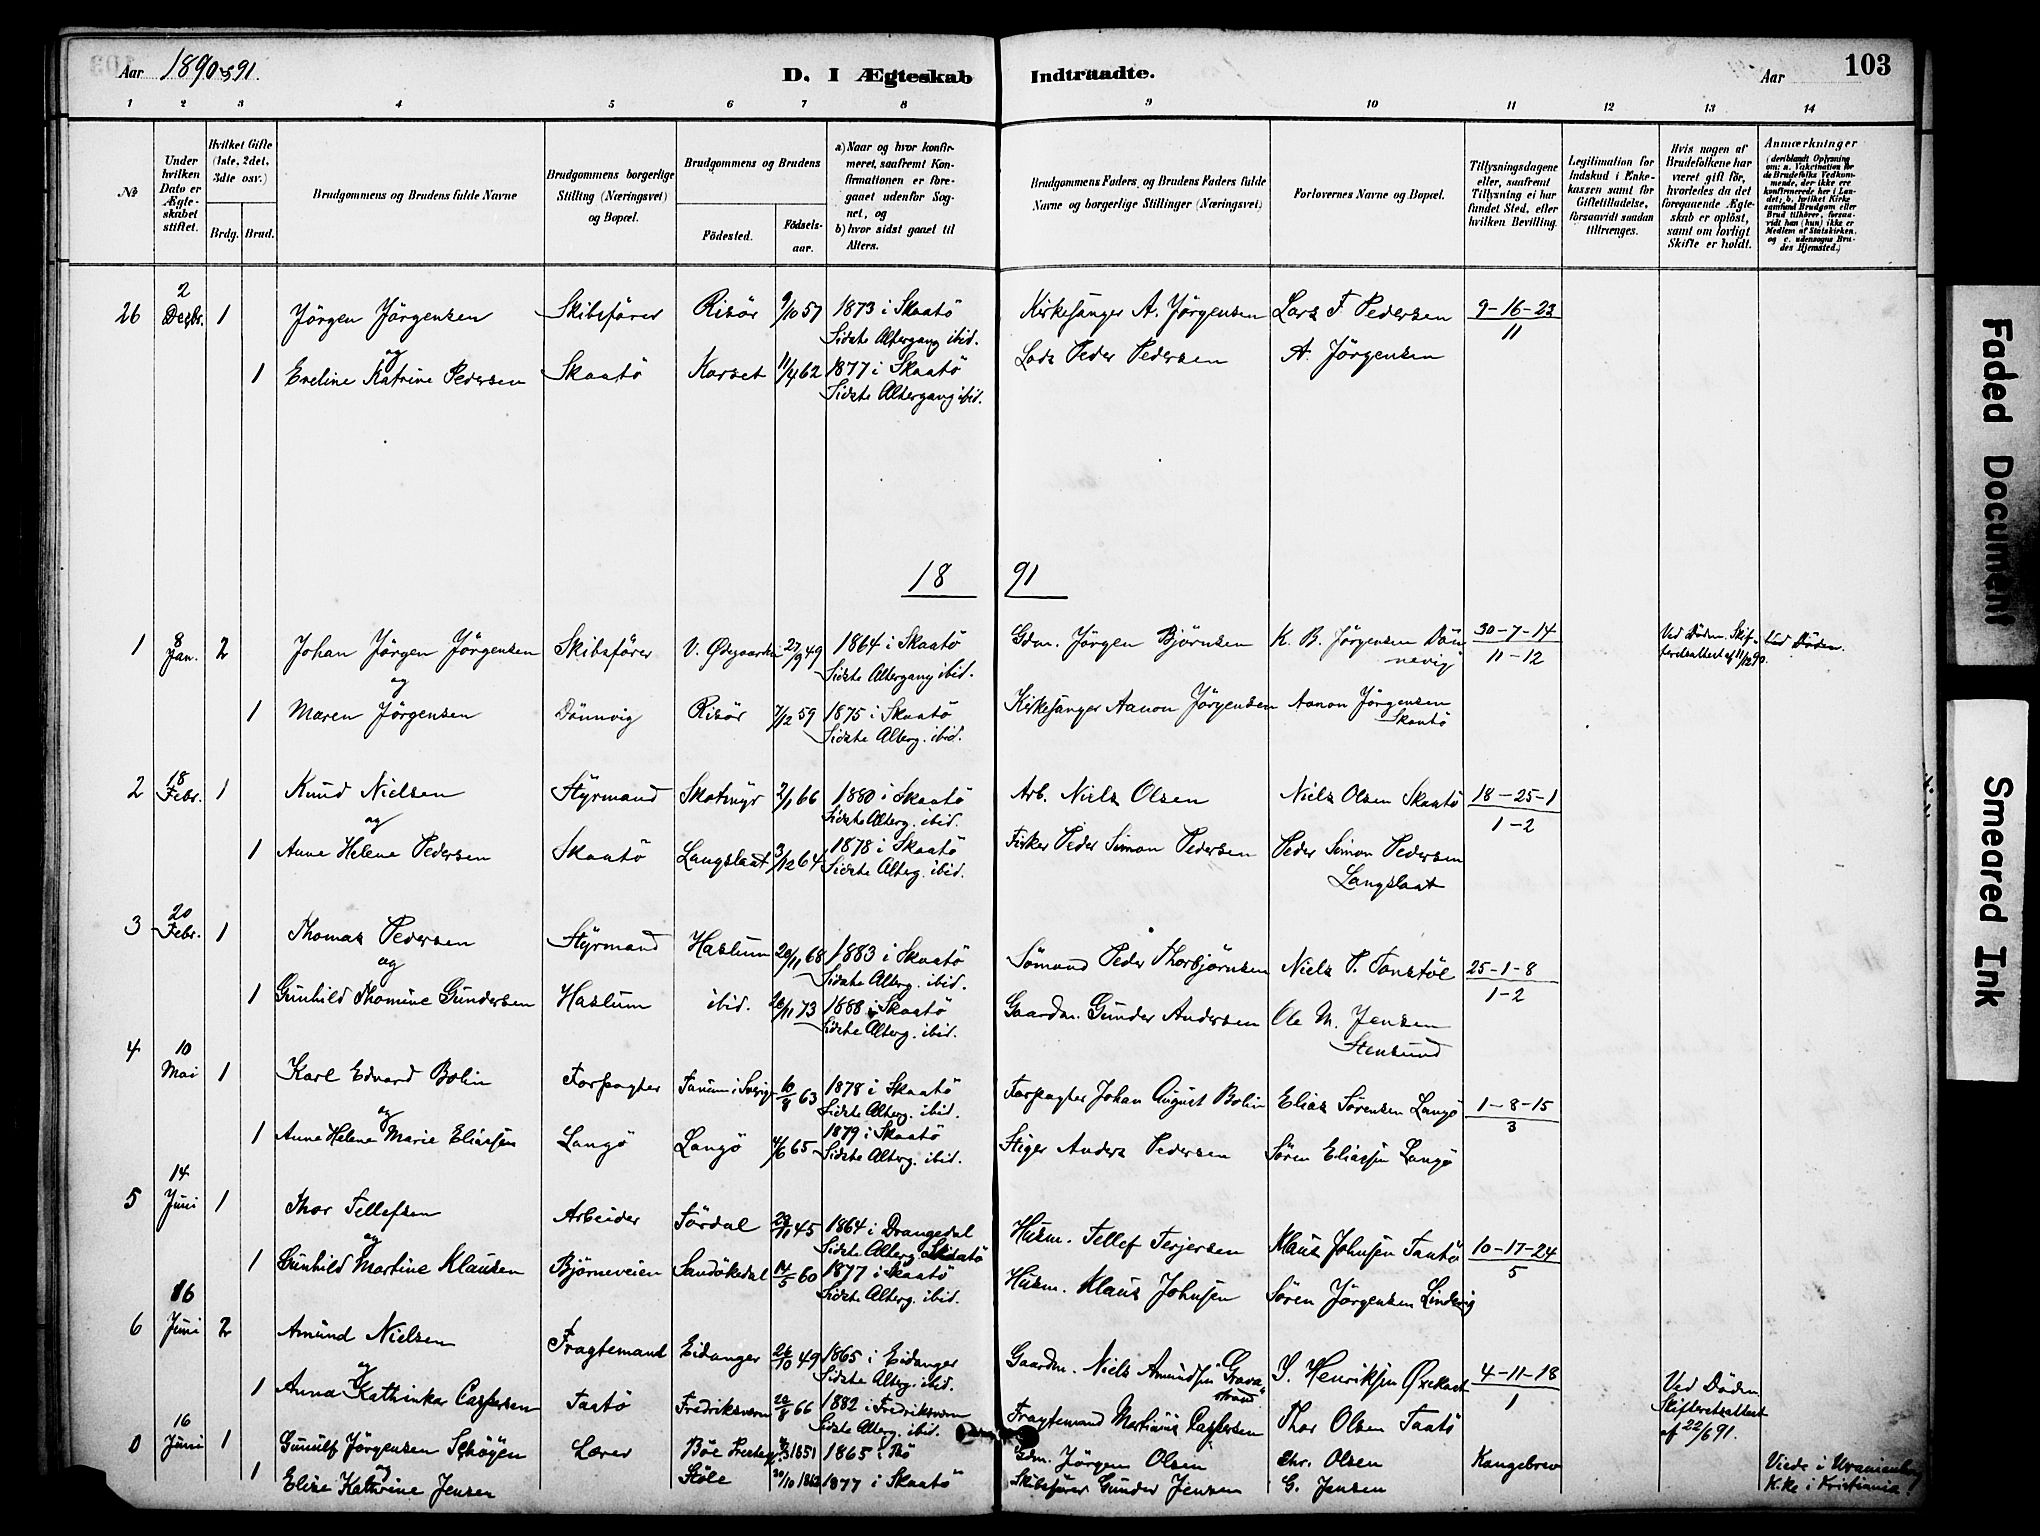 103
Aar 1890 & 91.
D. I Ægteskab Indtraadte.
Aar
1 2 3 4 5 6 7 8 9 10 11 12 13 14
No
Under hvilken Dato er Ægteskabet stiftet.
Hvilket Gifte (1ste, 2det, 3die osv.)
Brdg. Brud.
Brudgommens og Brudens fulde Navne
Brudgommens borgerlige Stilling (Næringsvei) og Bopæl.
Brudgommens og Brudens
Födested. Födselsaar.
a) Naar og hvor konfirmeret, saafremt Konfirmationen er foregaaet udenfor Sognet, og
b) hvor sidst gaaet til Alters.
Brudgommens Faders og Brudens Faders fulde Navne og borgerlige Stillinger (Næringsvei)
Forlovernes Navne og Bopæl.
Tillysningsdagene eller, saafremt Tillysning ei har fundet Sted, efter hvilken Bevilling.
Legitimation for Indskud i Enkekassen samt for Giftetilladelse, forsaavidt saadan tiltrænges.
Hvis nogen af Brudefolkene har været gift för, hvorledes da det foregaaende Ægteskab er oplöst, samt om lovligt Skifte er holdt.
Anmærkninger (deriblandt Oplysning om: a. Vakcination for de Brudefolks Vedkommende, der ikke ere konfirmerede her i Landet; b. hvilket Kirkesamfund Brudgom eller Brud tilhører, forsaavidt han (hun) ikke er Medlem af Statskirken, og c. udensogns Brudes Hjemsted.)
26 2 Decbr. 1 Jörgen Jörgensen Skibsförer Risör 9/10 57 1873 i Skaatö Kirkesanger A. Jörgensen Lars F. Pedersen 9-16-23
Sidste Altergang ibid. 11
og
1 Eveline Katrine Pedersen Skaatö Korset 11/4 62 1877 i Skaatö Lods Peder Pedersen A. Jörgensen
Sidste Altergang ibid.
18 91
1 8 Jan. 2 Johan Jörgen Jörgensen Skibsförer V. Ødegaarden 27/9 49 1864 i Skaatö Gdm. Jörgen Bjørnsen K. B. Jörgensen Dönnevig 30-7-14 Ved Döden. Skifteretsattest af 11/12 90. Ved Döden.
Sidste Altergang ibid. 11-12
og
1 Maren Jörgensen Dönnvig Risör 7/12 59 1875 i Skaatö Kirkesanger Aanon Jörgensen Aanon Jörgensen Skaatö
Sidste Alterg. ibid.
2 18 Febr. 1 Knud Nielsen Styrmand Skotmyr 2/1 66 1880 i Skaatö Arb. Niels Olsen Niels Olsen Skaatö 18-25-1
Sidste Alterg. ibid. 1-2
og
1 Anne Helene Pedersen Skaatö Langslaat 3/12 64 1878 i Skaatö Fisker Peder Simon Pedersen Peder Simon Pedersen Langslaat
Sidste Alterg. ibid.
3 20 Febr. 1 Thomas Pedersen Styrmand Haslum 20/11 68 1883 i Skaatö Sömand Peder Thorbjörnsen Niels P. Tonstöl 25-1-8
Sidste Alterg. ibid. 1-2
og
1 Gunhild Thomine Gundersen Haslum ibid. 26/11 73 1888 i Skaatö Gaardm. Gunder Andersen Ole M. Jensen Stensund
Sidste Alterg. ibid.
4 10 Mai 1 Karl Edvard Bolin Forpagter Tanum i Sverige 10/8 63 1878 i Skaatö Forpagter Johan August Bolin Elias Sörensen Langö 1-8-15
Sidste Alterg. ibid. 3
og
1 Anne Helene Marie Eliassen Langö Langö 4/6 65 1879 i Skaatö Stiger Anders Pedersen Sören Eliassen Langö
Sidste Alterg. ibid.
5 14 Juni 1 Thor Tellefsen Arbeider Tördal 23/11 45 1864 i Drangedal Husm. Tellef Terjersen Klaus Johnsen Taatö 10-17-24
Sidste Alterg. Skaatö 5
og
1 Gunhild Martine Klausen Bjørneveien Sandökedal 14/5 60 1877 i Skaatö Husm. Klaus Johnsen Sören Jörgensen Lindvig
Sidste Alterg. ibid.
6 16 Juni 2 Amund Nielsen Fragtemand Eidanger 26/10 49 1865 i Eidanger Gaardm. Niels Amundsen Gravastrand S. Henriksen Øxekast 4-11-18
Sidste Alterg. ibid. 1
og
1 Anna Kathinka Caspersen Taatö Fredriksværn 20/8 66 1882 i Fredriksværn Fragtemand Martinius Caspersen Thor Olsen Taatö Ved Döden Skifteretsattest af 22/6 91.
Sidste Alterg. ibid.
0 16 Juni 1 Gunulf Jörgensen Schöyen Lærer Böe 1851 1865 i Gdm. Jörgen Olsen Chr. Olsen Kongebrev Viede i Uranienborg K.ke i Kristiania.
og
1 Elise Kathrine Jensen Stöle 20/10 1862 1877 i Skaatö Skibsförer Gunder Jensen G. Jensen
Faded Document
Smeared Ink